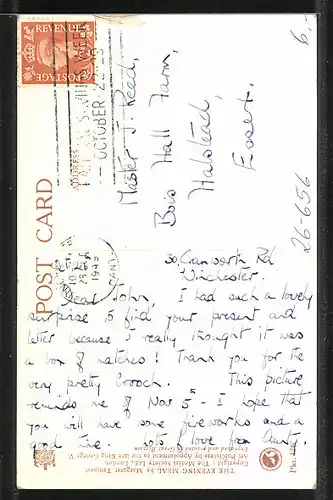 REVENUE
POSTAGE
OCTOBER 2
POST CARD
6.-
Master J. Reed,
Bois Hall Farm,
Halstead,
Essex.
26-656
30 Cranworth Rd
Winchester.
Dear John, I had such a lovely
surprise to find your present and
letter because I really thought it was
a box of matches! Thank you for the
very pretty brooch. This picture
reminds me of Nov 5th - I hope that
you will have some fireworks and a
good time. Lots of love from Aunty.
THE EVENING MEAL by Margaret Tempest
Copyright The Medici Society Ltd., London.
Art Publishers by Appointment to the late King George V.
Engraved and printed in Great Britain
Pk.